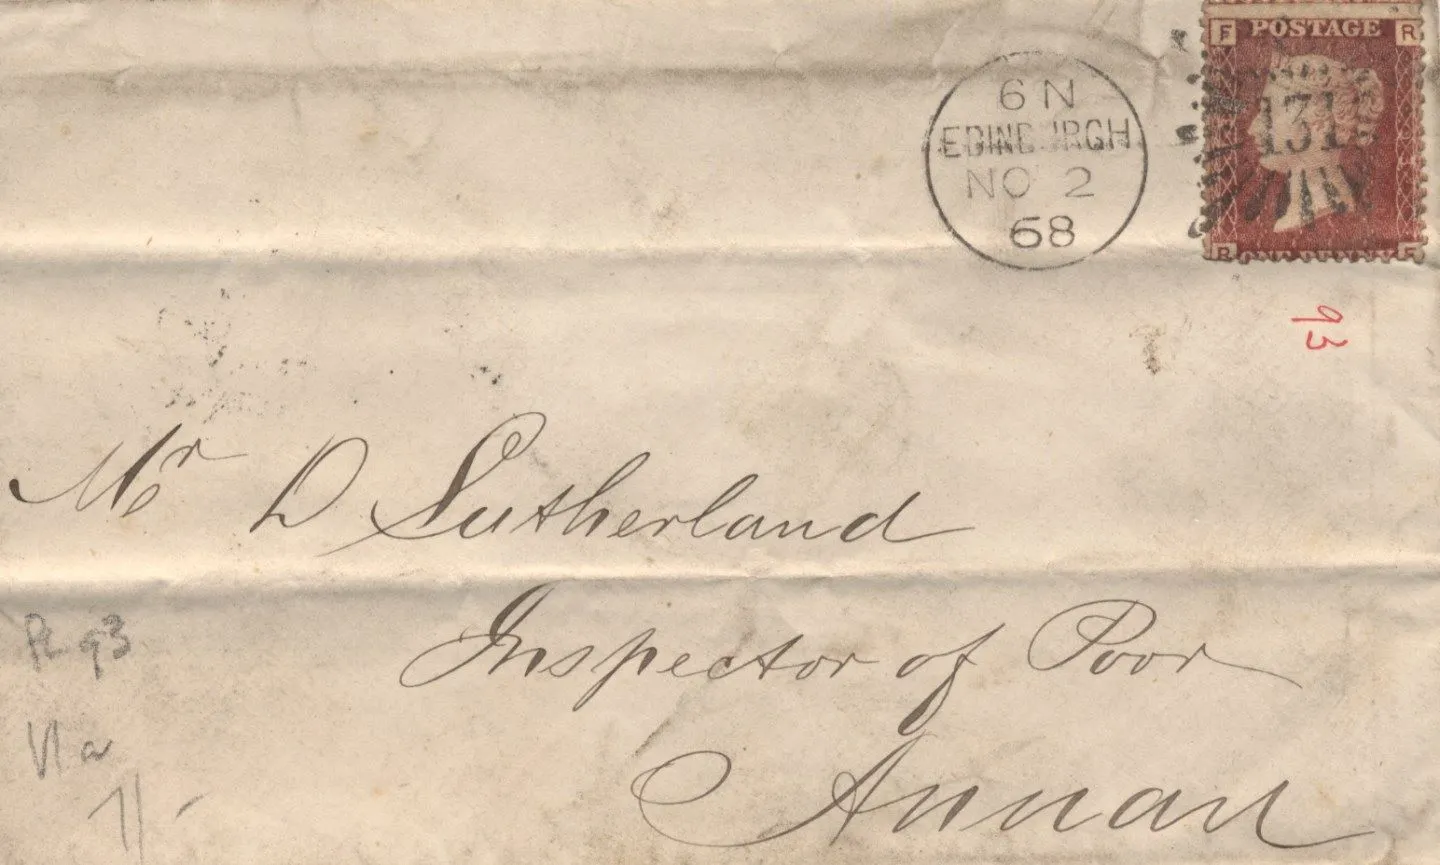 POSTAGE
F R
131
R ONE PENNY F
6 N
EDINBURGH
NO 2
68
93
Mr D Sutherland
Inspector of Poor
Annan
PL 93